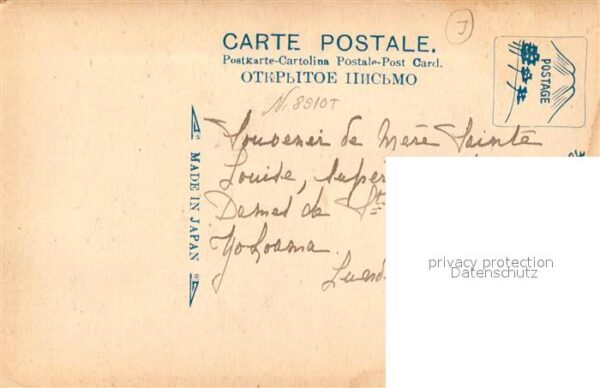 J
CARTE POSTALE.
Postkarte-Cartolina Postale-Post Card.
ОТКРЫТОЕ ПИСЬМО
POSTAGE
No 8910T
Souvenir de Mère Sainte
Louise, super
Dames de St
Yokoama.
MADE IN JAPAN
privacy protection
Datenschutz